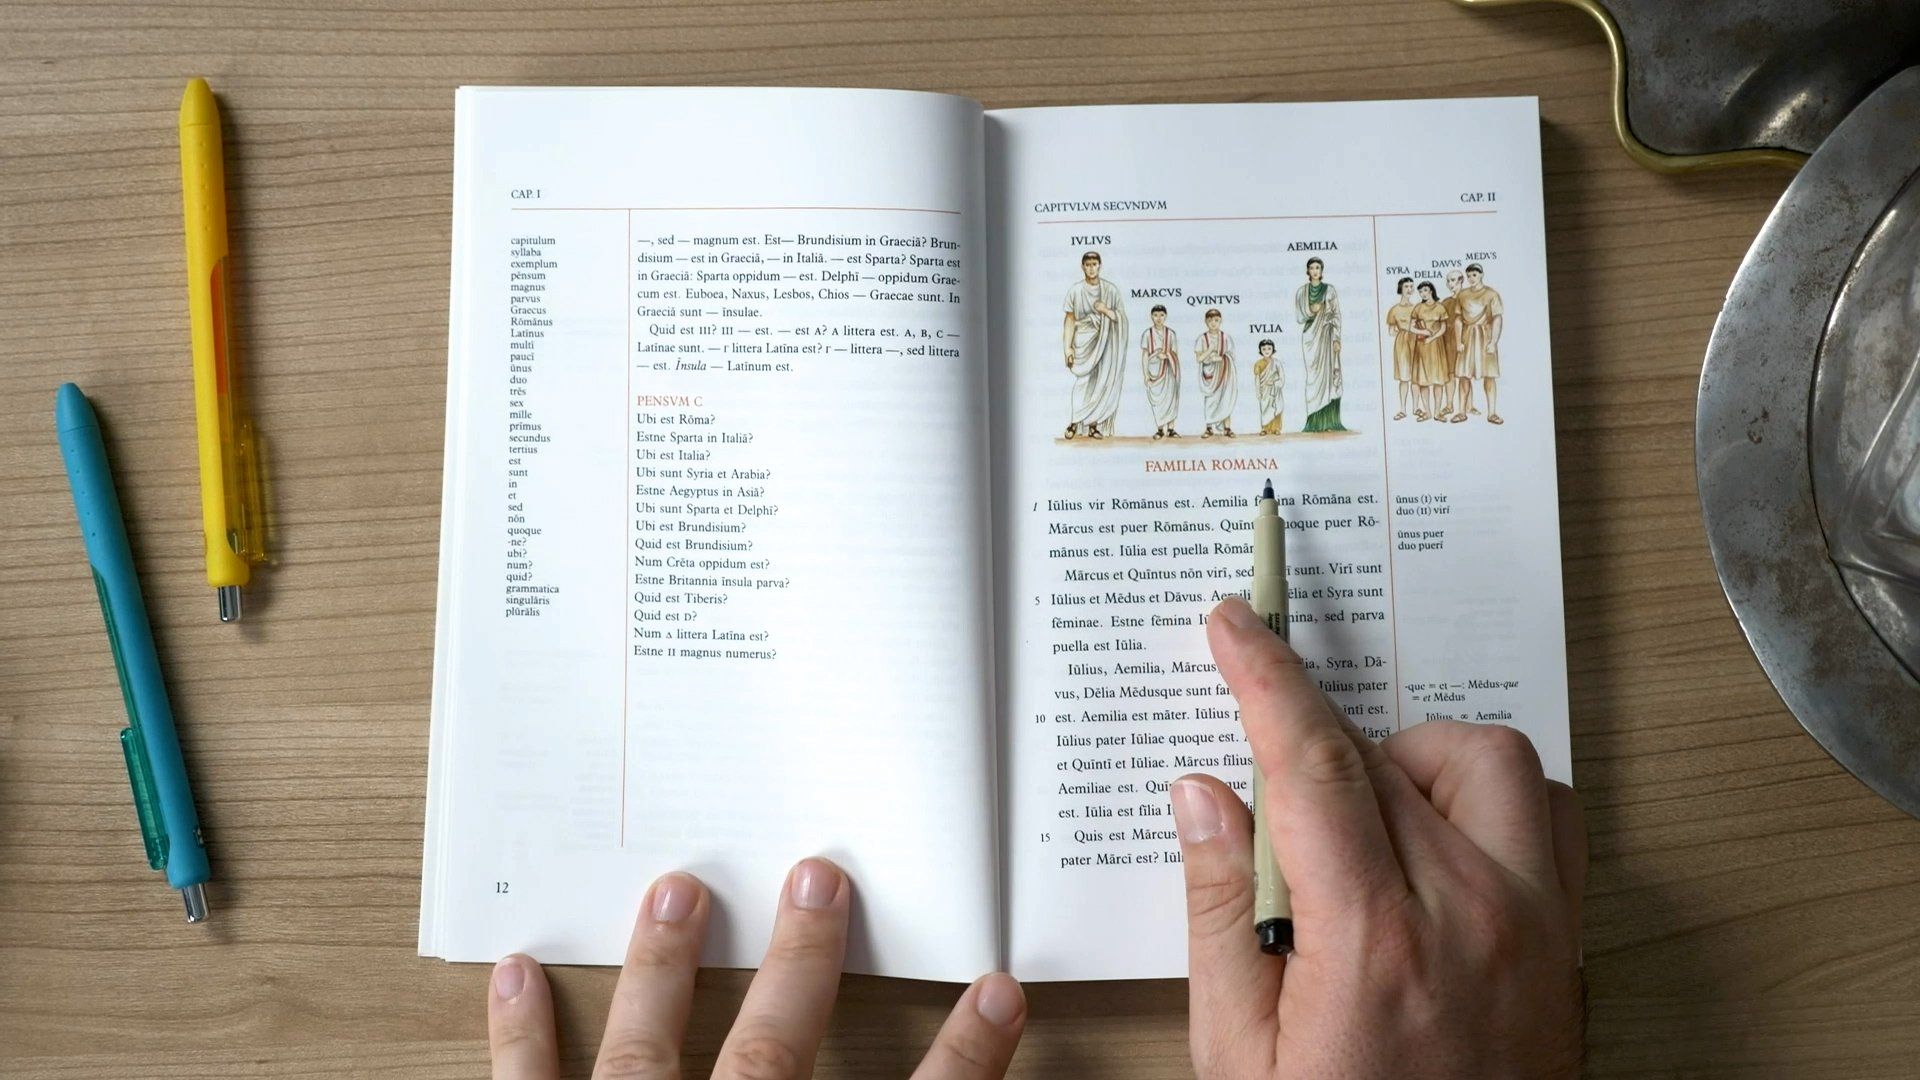 CAP. I
capitulum
syllaba
exemplum
pēnsum
magnus
parvus
Graecus
Rōmānus
Latīnus
multī
paucī
ūnus
duo
trēs
sex
mīlle
prīmus
secundus
tertius
est
sunt
in
et
sed
nōn
quoque
-ne?
ubi?
num?
quid?
grammatica
singulāris
plūrālis
—, sed — magnum est. Est— Brundisium in Graeciā? Brun-
disium — est in Graeciā, — in Italiā. — est Sparta? Sparta est
in Graeciā: Sparta oppidum — est. Delphī — oppidum Grae-
cum est. Euboea, Naxus, Lesbos, Chios — Graecae sunt. In
Graeciā sunt — īnsulae.
Quid est III? III — est. — est A? A littera est. A, B, C —
Latīnae sunt. — Γ littera Latīna est? Γ — littera —, sed littera
— est. Īnsula — Latīnum est.
PENSVM C
Ubi est Rōma?
Estne Sparta in Italiā?
Ubi est Italia?
Ubi sunt Syria et Arabia?
Estne Aegyptus in Asiā?
Ubi sunt Sparta et Delphī?
Ubi est Brundisium?
Quid est Brundisium?
Num Crēta oppidum est?
Estne Britannia īnsula parva?
Quid est Tiberis?
Quid est D?
Num Δ littera Latīna est?
Estne II magnus numerus?
12
CAPITVLVM SECVNDVM
CAP. II
IVLIVS
MARCVS
QVINTVS
IVLIA
AEMILIA
SYRA
DELIA
DAVVS
MEDVS
FAMILIA ROMANA
1 Iūlius vir Rōmānus est. Aemilia Rōmāna est.
Mārcus est puer Rōmānus. puer Rō-
mānus est. Iūlia est puella
Mārcus et Quīntus nōn virī, sed sunt. Virī sunt
5 Iūlius et Mēdus et Dāvus. et Syra sunt
fēminae. Estne fēmina sed parva
puella est Iūlia.
Iūlius, Aemilia, Mārcus Syra, Dā-
vus, Dēlia Mēdusque sunt Iūlius pater
10 est. Aemilia est māter. Iūlius est.
Iūlius pater Iūliae quoque est. Mārcī
et Quīntī et Iūliae. Mārcus fīlius
Aemiliae est.
est. Iūlia est fīlia
15 Quis est Mārcus
pater Mārcī est?
ūnus (I) vir
duo (II) virī
ūnus puer
duo puerī
-que = et —: Mēdus-que
= et Mēdus
Iūlius ∞ Aemilia